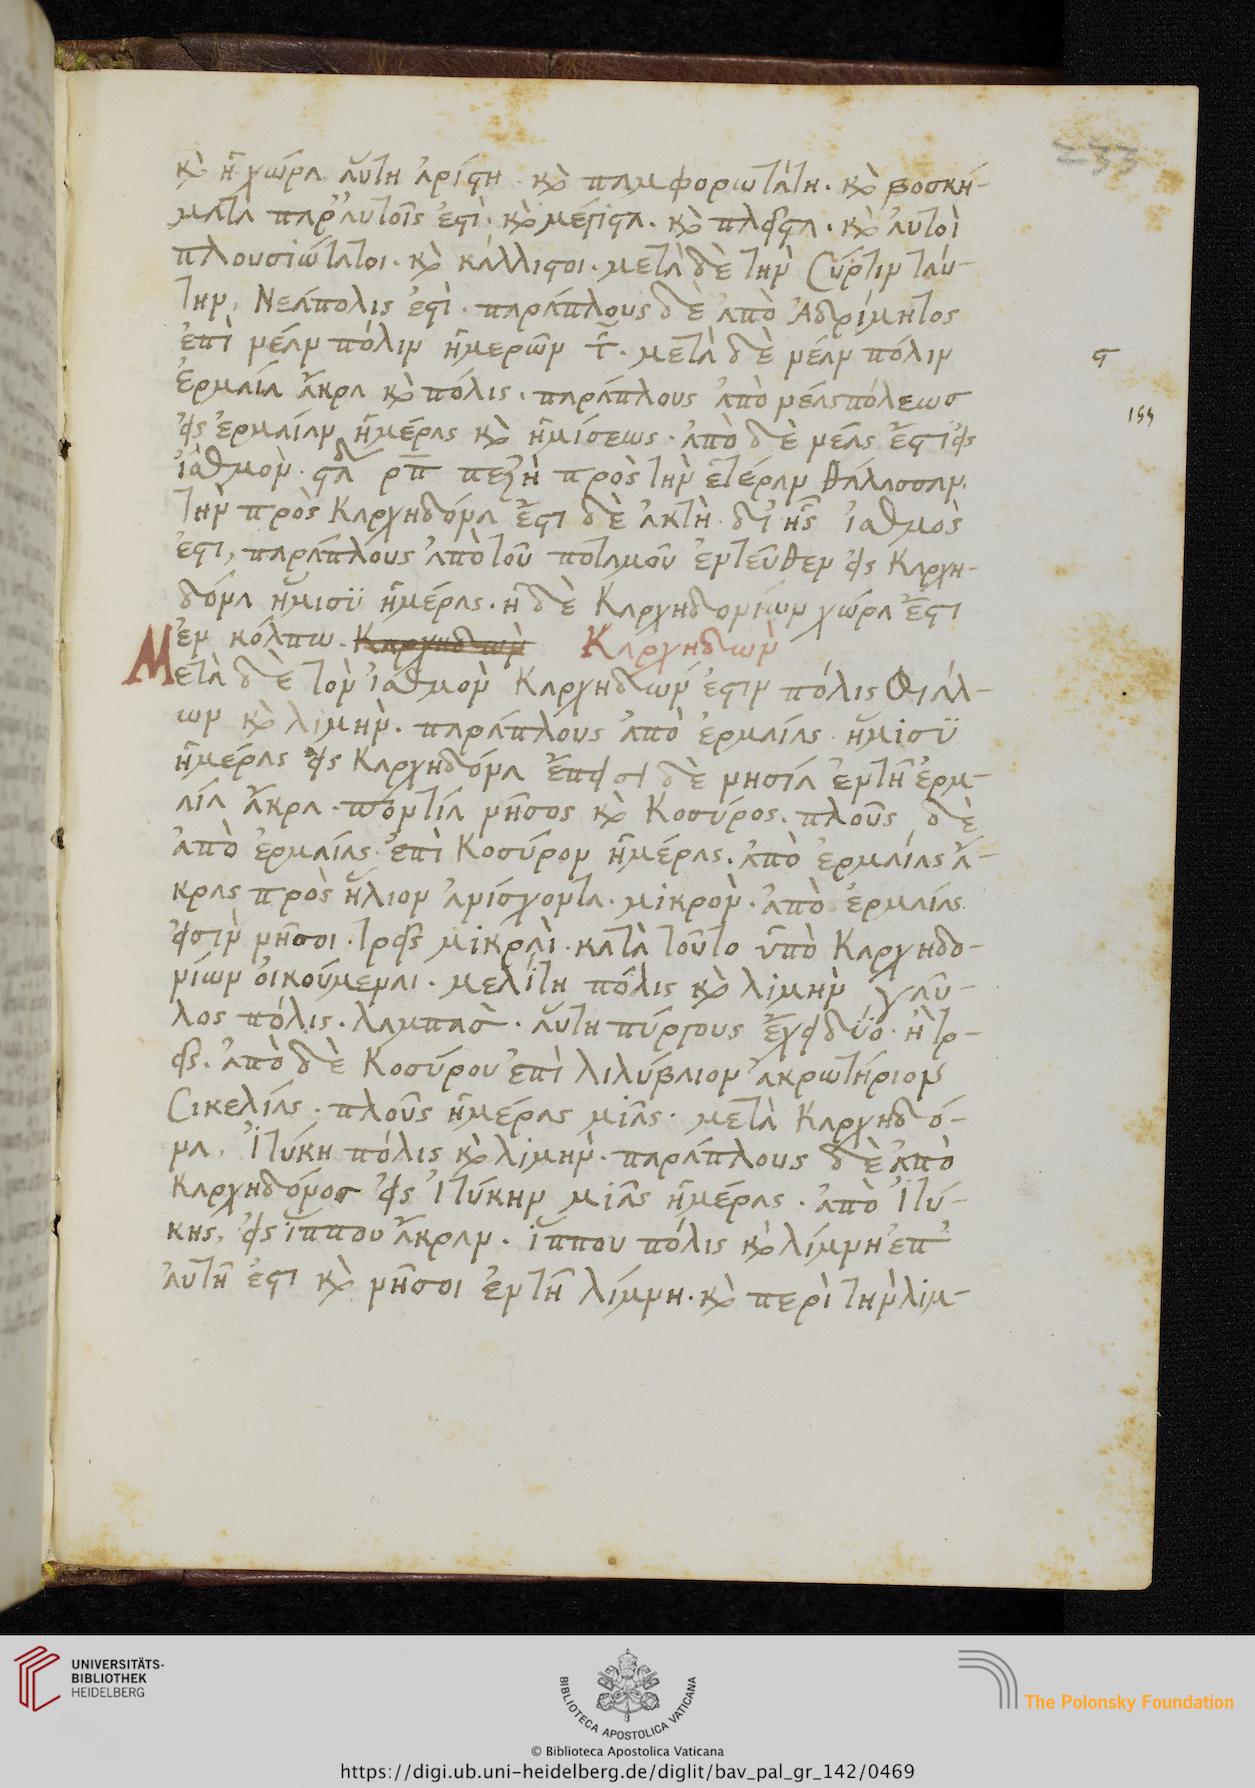 233
καὶ ἡ χώρα αὕτη ἀρίστη καὶ παμφορωτάτη. καὶ βοσκή-
ματα παρ' αὐτοῖς ἐστὶ. καὶ μέγιστα. καὶ πλεῖστα. καὶ αὐτοὶ
πλουσιώτατοι. καὶ κάλλιστοι. μετὰ δὲ τὴν Σύρτιν ταύ-
την, Νεάπολις ἐστὶ. παράπλους δὲ ἀπὸ Ἀδρύμητος
ἐπὶ νέαν πόλιν ἡμερῶν γ̄. μετὰ δὲ νέαν πόλιν
ἑρμαία ἄκρα καὶ πόλις. παράπλους ἀπὸ νέας πόλεως
εἰς ἑρμαίαν ἡμέρας καὶ ἡμίσεως. ἀπὸ δὲ νέας ἔστι εἰς
ἰσθμὸν. στάδ ρπ πεζῆ πρὸς τὴν ἑτέραν θάλασσαν.
τὴν πρὸς Καρχηδόνα ἔστι δὲ ἀκτὴ. δι' ἧς ἰσθμὸς
ἐστι, παράπλους ἀπὸ τοῦ ποταμοῦ ἐντεῦθεν εἰς Καρχη-
δόνα ἥμισυ ἡμέρας. ἡ δὲ Καρχηδονίων χώρα ἔστι
ἐν κόλπω. Καρχηδὼν Καρχηδὼν
Μετὰ δὲ τὸν ἰσθμὸν Καρχηδών ἐστιν πόλις Φιάλ-
ων καὶ λιμὴν. παράπλους ἀπὸ ἑρμαίας. ἥμισυ
ἡμέρας εἰς Καρχηδόνα ἔπεισι δὲ νησία ἐν τῆ ἑρμ-
αία ἄκρα. ποντία νῆσος καὶ Κοσύρος. πλοῦς δὲ
ἀπὸ ἑρμαίας. ἐπὶ Κοσύρον ἡμέρας. ἀπὸ ἑρμαίας ἄ-
κρας πρὸς ἥλιον ἀνίσχοντα. μικρὸν. ἀπὸ ἑρμαίας.
εἰσὶν νῆσοι. τρεῖς μικραὶ. κατὰ τοῦτο ὑπὸ Καρχηδο-
νίων οἰκούμεναι. μελίτη πόλις καὶ λιμὴν γαῦ-
λος πόλις. λαμπασ. αὕτη πύργους ἔχει δύο. ἢ τρ-
εῖς. ἀπὸ δὲ Κοσύρου ἐπὶ λιλύβαιον ἀκρωτήριον
Σικελίας. πλοῦς ἡμέρας μιᾶς. μετὰ Καρχηδό-
να, Ἰτύκη πόλις καὶ λιμὴν. παράπλους δὲ ἀπὸ
Καρχηδόνος εἰς Ἰτύκην μιᾶς ἡμέρας. ἀπὸ Ἰτύ-
κης, εἰς ἵππου ἄκραν. ἵππου πόλις καὶ λίμνη ἐπ'
αὐτῆ ἐστι καὶ νῆσοι ἐν τῆ λίμνη. καὶ περὶ τὴν λίμ-
UNIVERSITÄTS-
BIBLIOTHEK
HEIDELBERG
BIBLIOTECA APOSTOLICA VATICANA
The Polonsky Foundation
© Biblioteca Apostolica Vaticana
https://digi.ub.uni-heidelberg.de/diglit/bav_pal_gr_142/0469